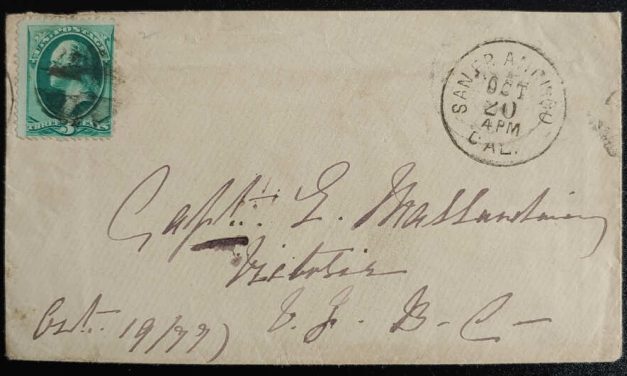 U.S. POSTAGE
THREE 3 CENTS
SAN FRANCISCO
OCT
20
4 PM
CAL.
Capt. E. Mallandaine
Victoria
V. I. B-C-
Oct. 19/77)